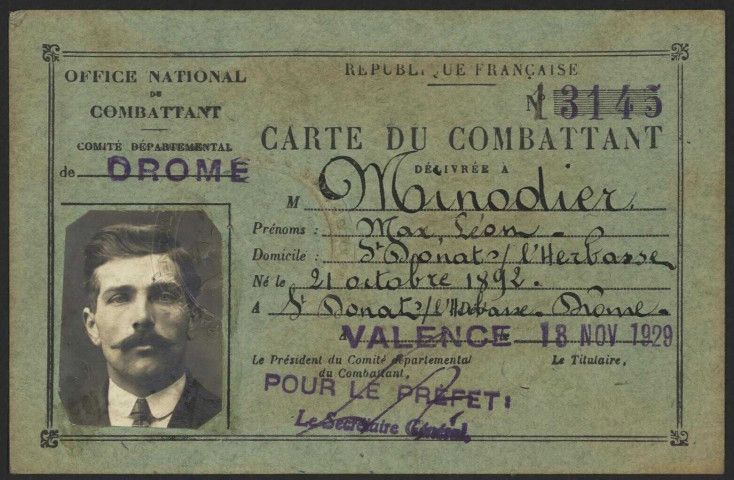 OFFICE NATIONAL
DU
COMBATTANT
COMITÉ DÉPARTEMENTAL
de DROME
REPUBLIQUE FRANÇAISE
N° 13145
CARTE DU COMBATTANT
DÉLIVRÉE A
M Minodier.
Prénoms : Max, Léon -
Domicile : St Donat s/ l'Herbasse
Né le 21 octobre 1892.
A St Donat s/l'Herbasse - Drôme -
A VALENCE le 18 NOV 1929
Le Président du Comité départemental
du Combattant,
Le Titulaire,
POUR LE PRÉFET:
Le Secrétaire Général,